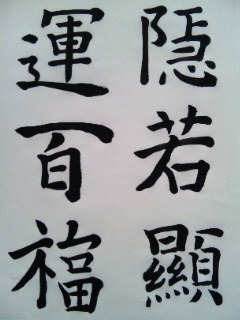 隠若顯
運百福